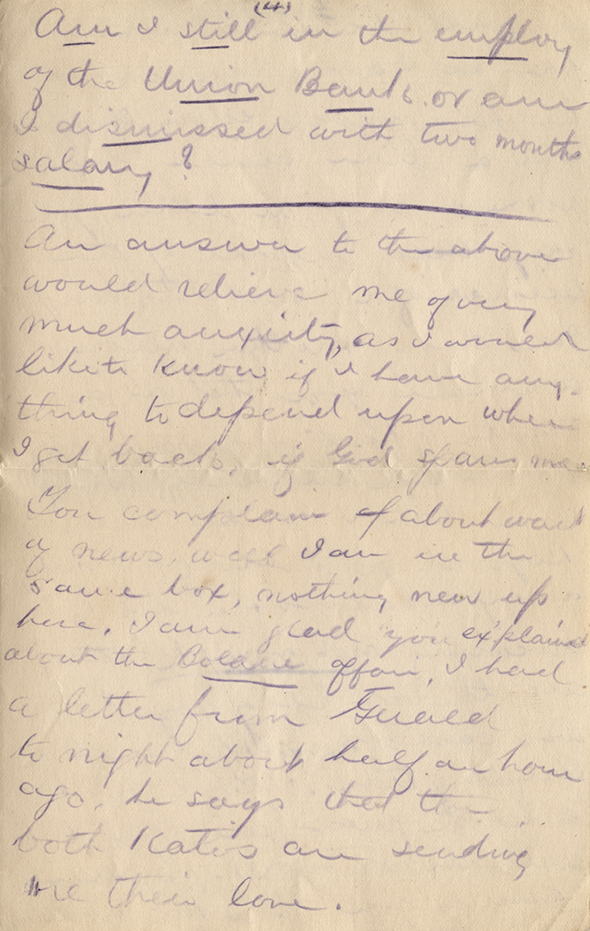 (4)
Am I still in the employ
of the Union Bank or am
I dismissed with two months
salary?
An answer to the above
would relieve me of very
much anxiety, as I would
like to know if I have any-
thing to depend upon when
I get back, if God spares me
You complain of about want
of news, well I am in the
same box, nothing new up
here. I am glad you explained
about the affair, I had
a letter from Gerald
to night about half an hour
ago, he says that the
both Katies are sending
me their love.